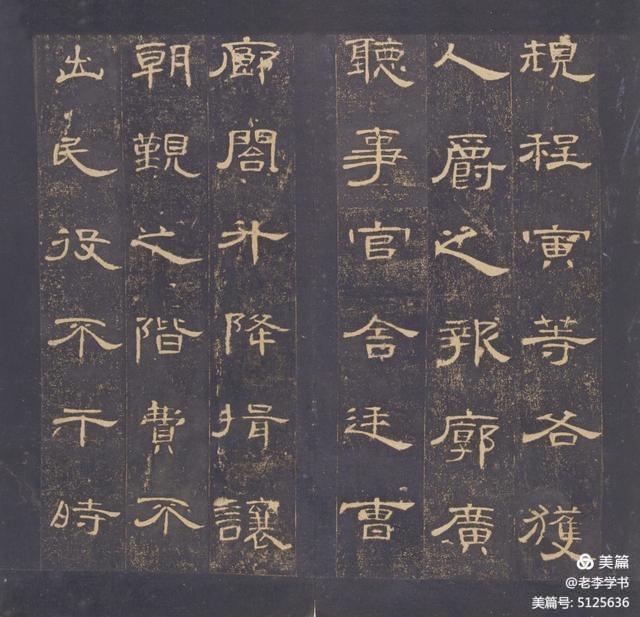 規程寅等各獲
人爵之報廓廣
聽事官舍廷曹
廊閣升降揖讓
朝覲之階費不
出民役不干時
美篇
@老李学书
美篇号: 5125636